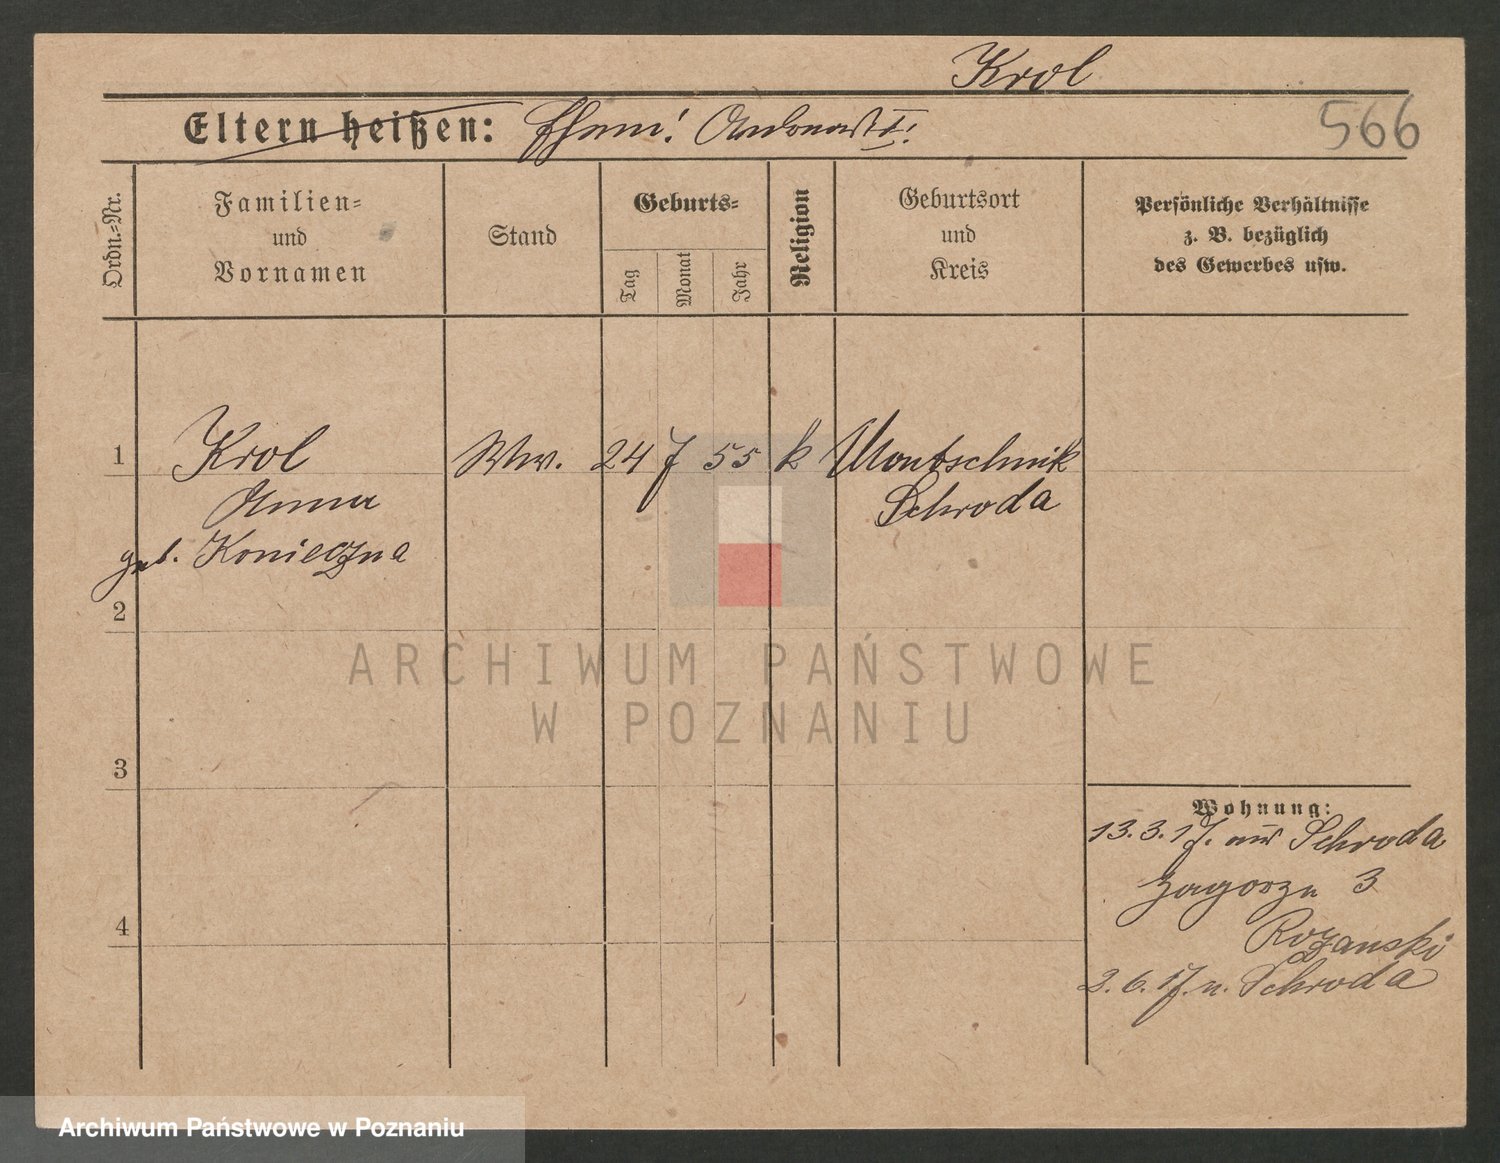 Krol
Eltern heißen:
566
Ordn.-Nr.
Familien-
und
Vornamen
Stand
Geburts-
Tag
Monat
Jahr
Religion
Geburtsort
und
Kreis
Persönliche Verhältnisse
z. B. bezüglich
des Gewerbes usw.
1 Krol Ww. 24 7 55 k Montschnik
Anna Schroda
geb. Konieczna
2
3
4
ARCHIWUM PAŃSTWOWE
W POZNANIU
Wohnung:
13.3.17. aus Schroda
Zagorze 3
Rozanski
2.6.17. n. Schroda
Archiwum Państwowe w Poznaniu